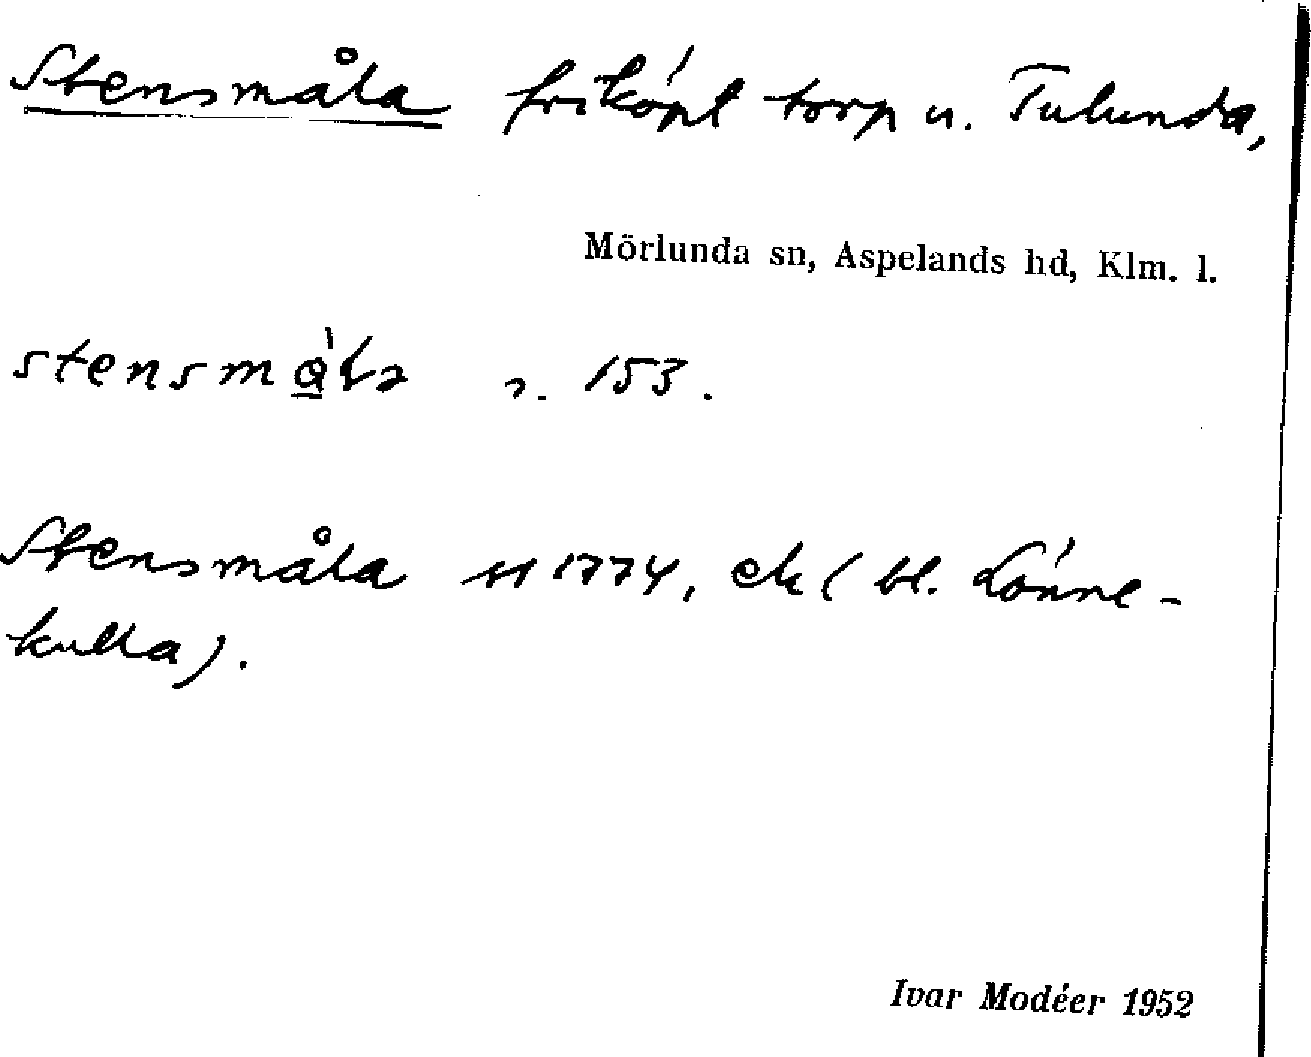 Stensmåla friköpt torp u. Tulunda,
Mörlunda sn, Aspelands hd, Klm. l.
s. 153.
Stensmåla 1774, ek (bl. Lönne-
kulla).
Ivar Modéer 1952